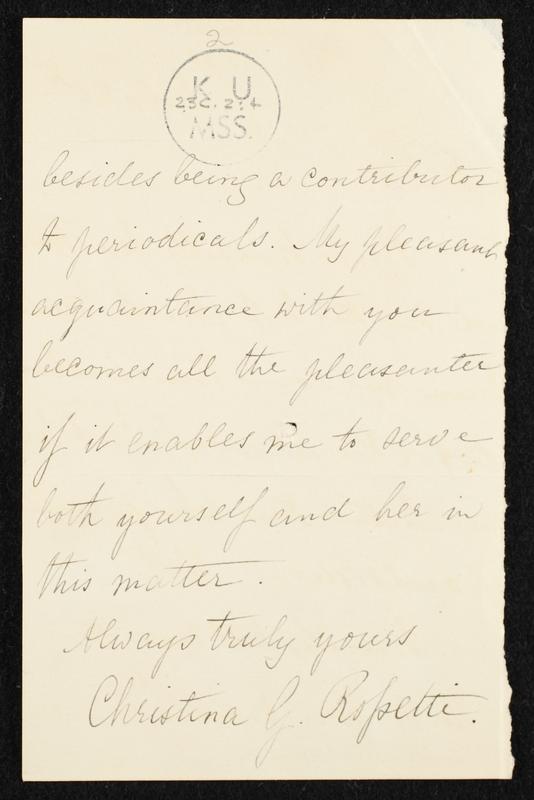 2
K U
23C. 2:4
MSS.
besides being a contributor
to periodicals. My pleasant
acquaintance with you
becomes all the pleasanter
if it enables me to serve
both yourself and her in
this matter.
Always truly yours
Christina G. Rossetti.